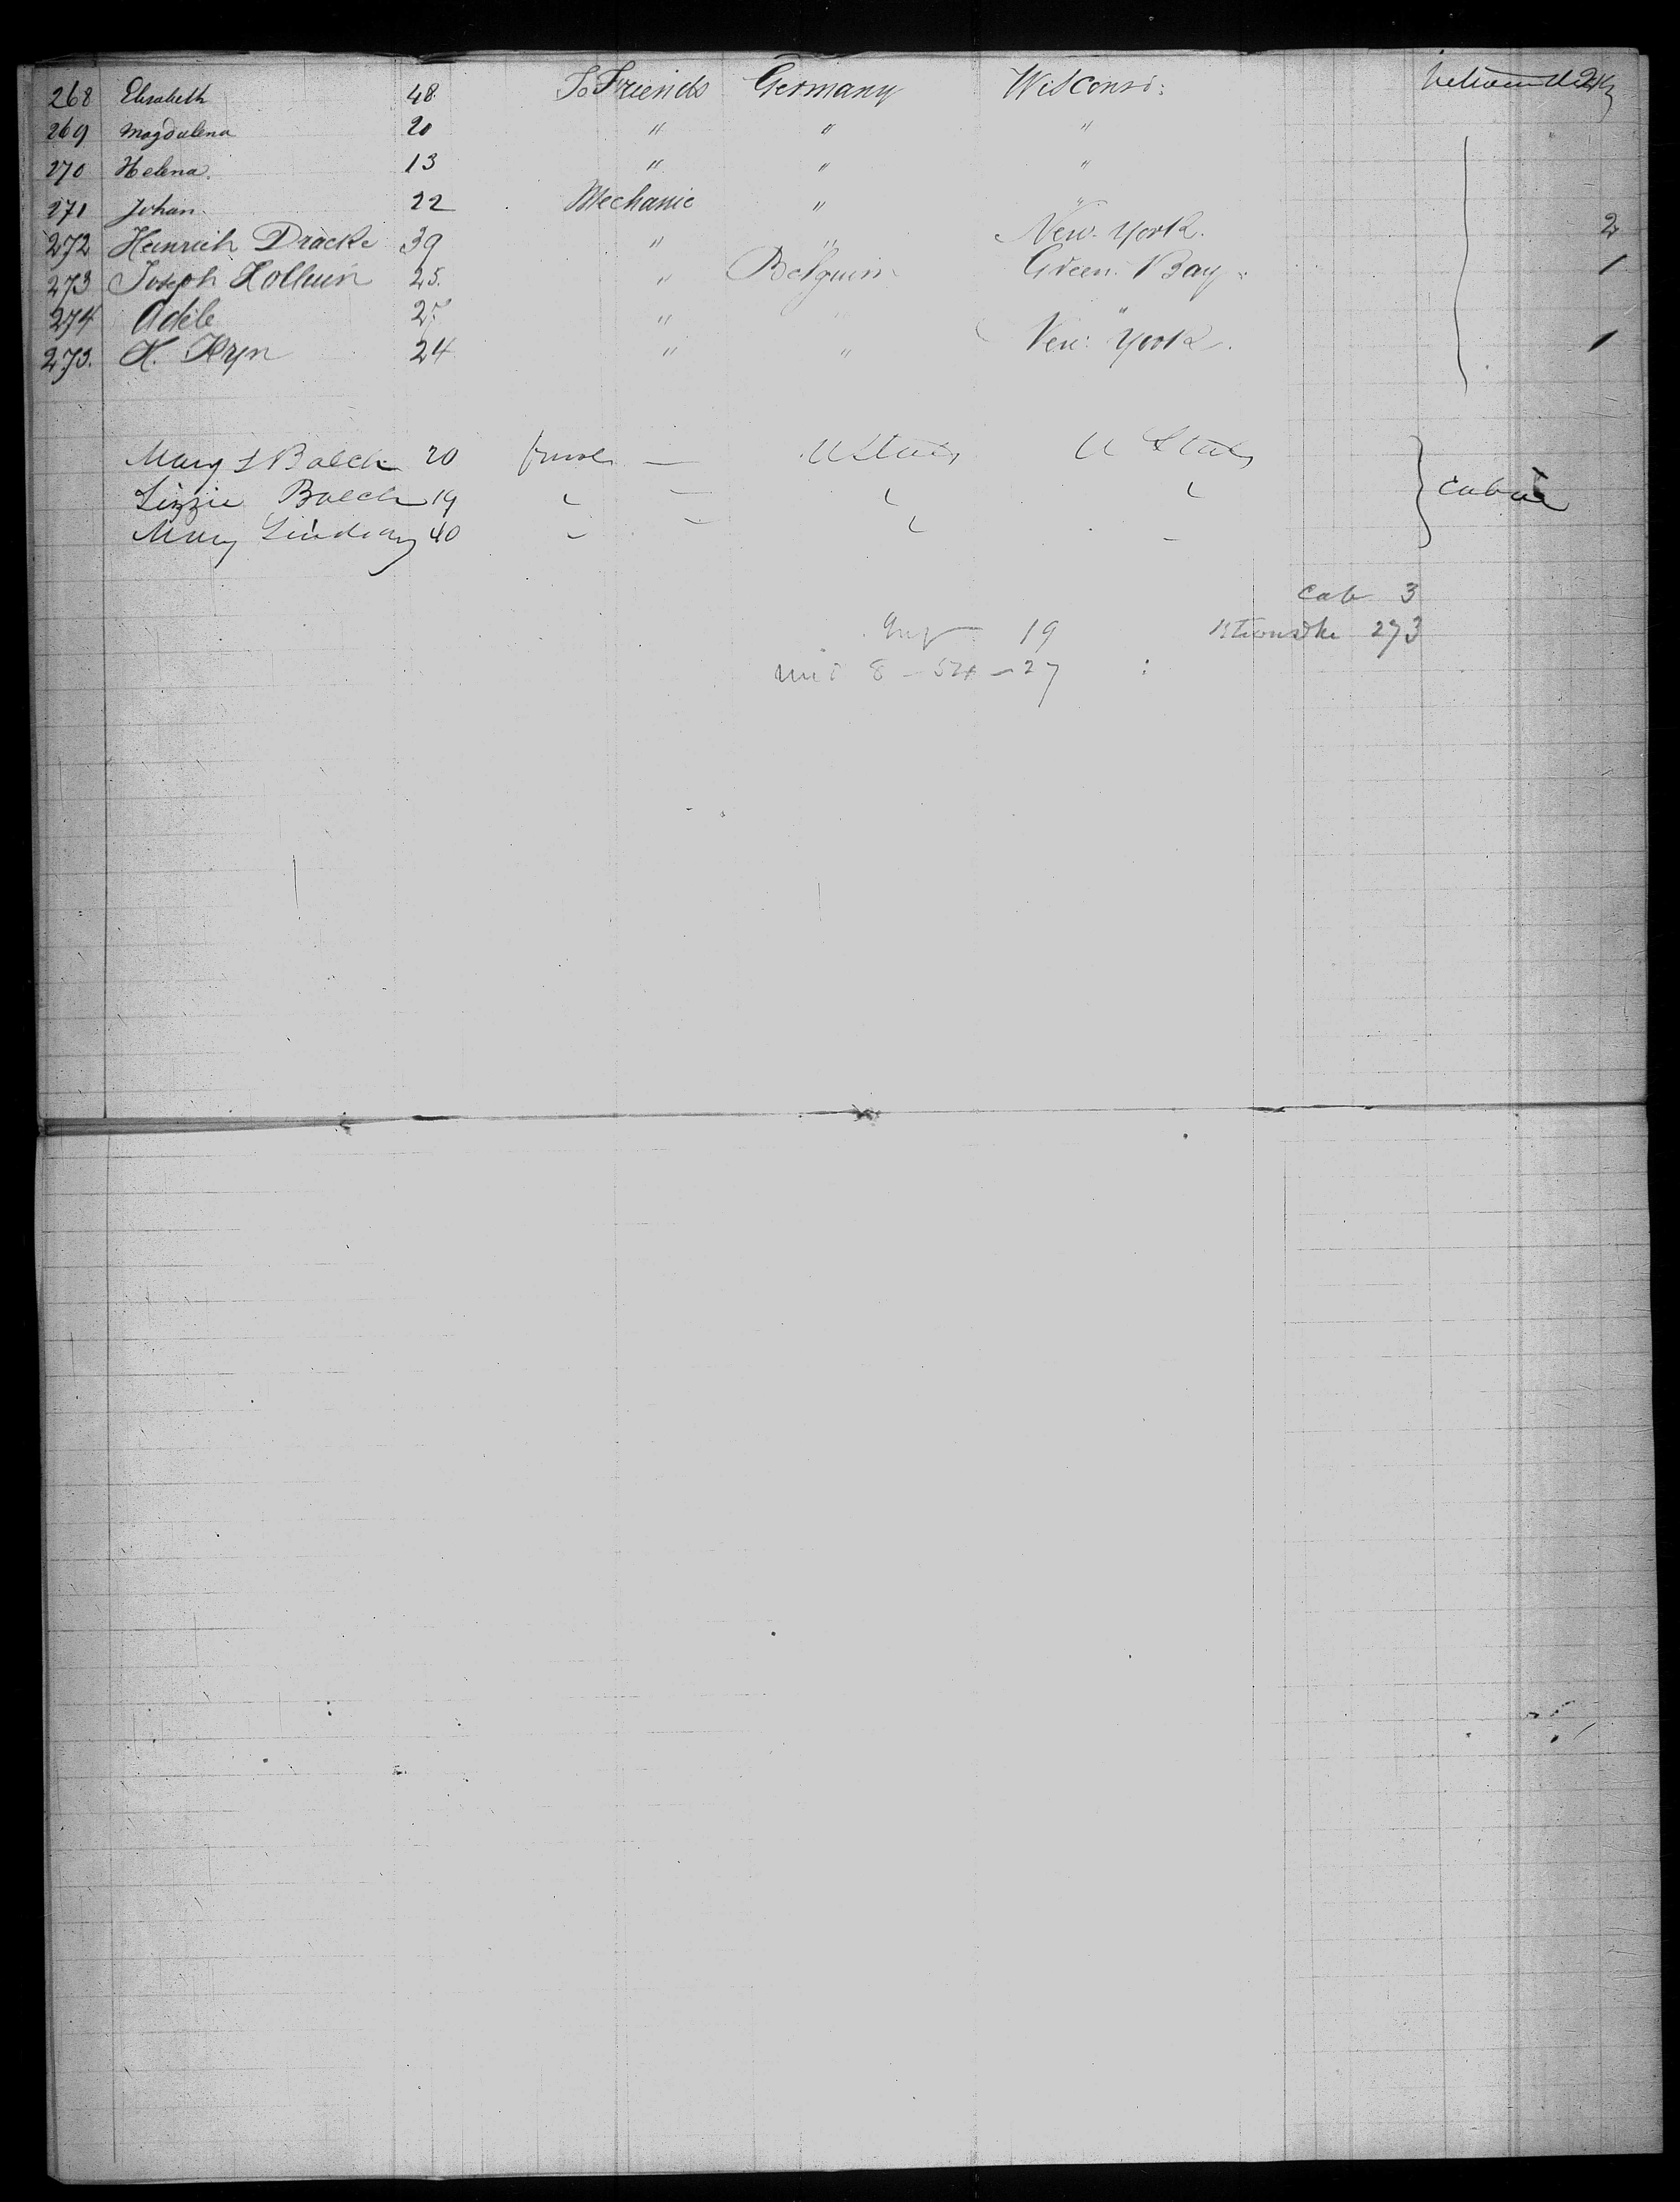 268 Elisabeth 48 To Friends Germany Wisconsi:
269 Magdalena 20 " " "
270 Helena. 13 " " "
271 Johan 22 Mechanic " "
272 Heinrich Dracke 39 " " New-York. 2
273 Joseph 25. " Belguim Green Bay 1
274 Adele 25 " " "
273. H. Kryn 24 " " New York. 1
Mary S Balch 20 U States U States
Lizzie Balch 19
Mary Lindsay 40
Cab 3
19 273
8 - 54 - 27